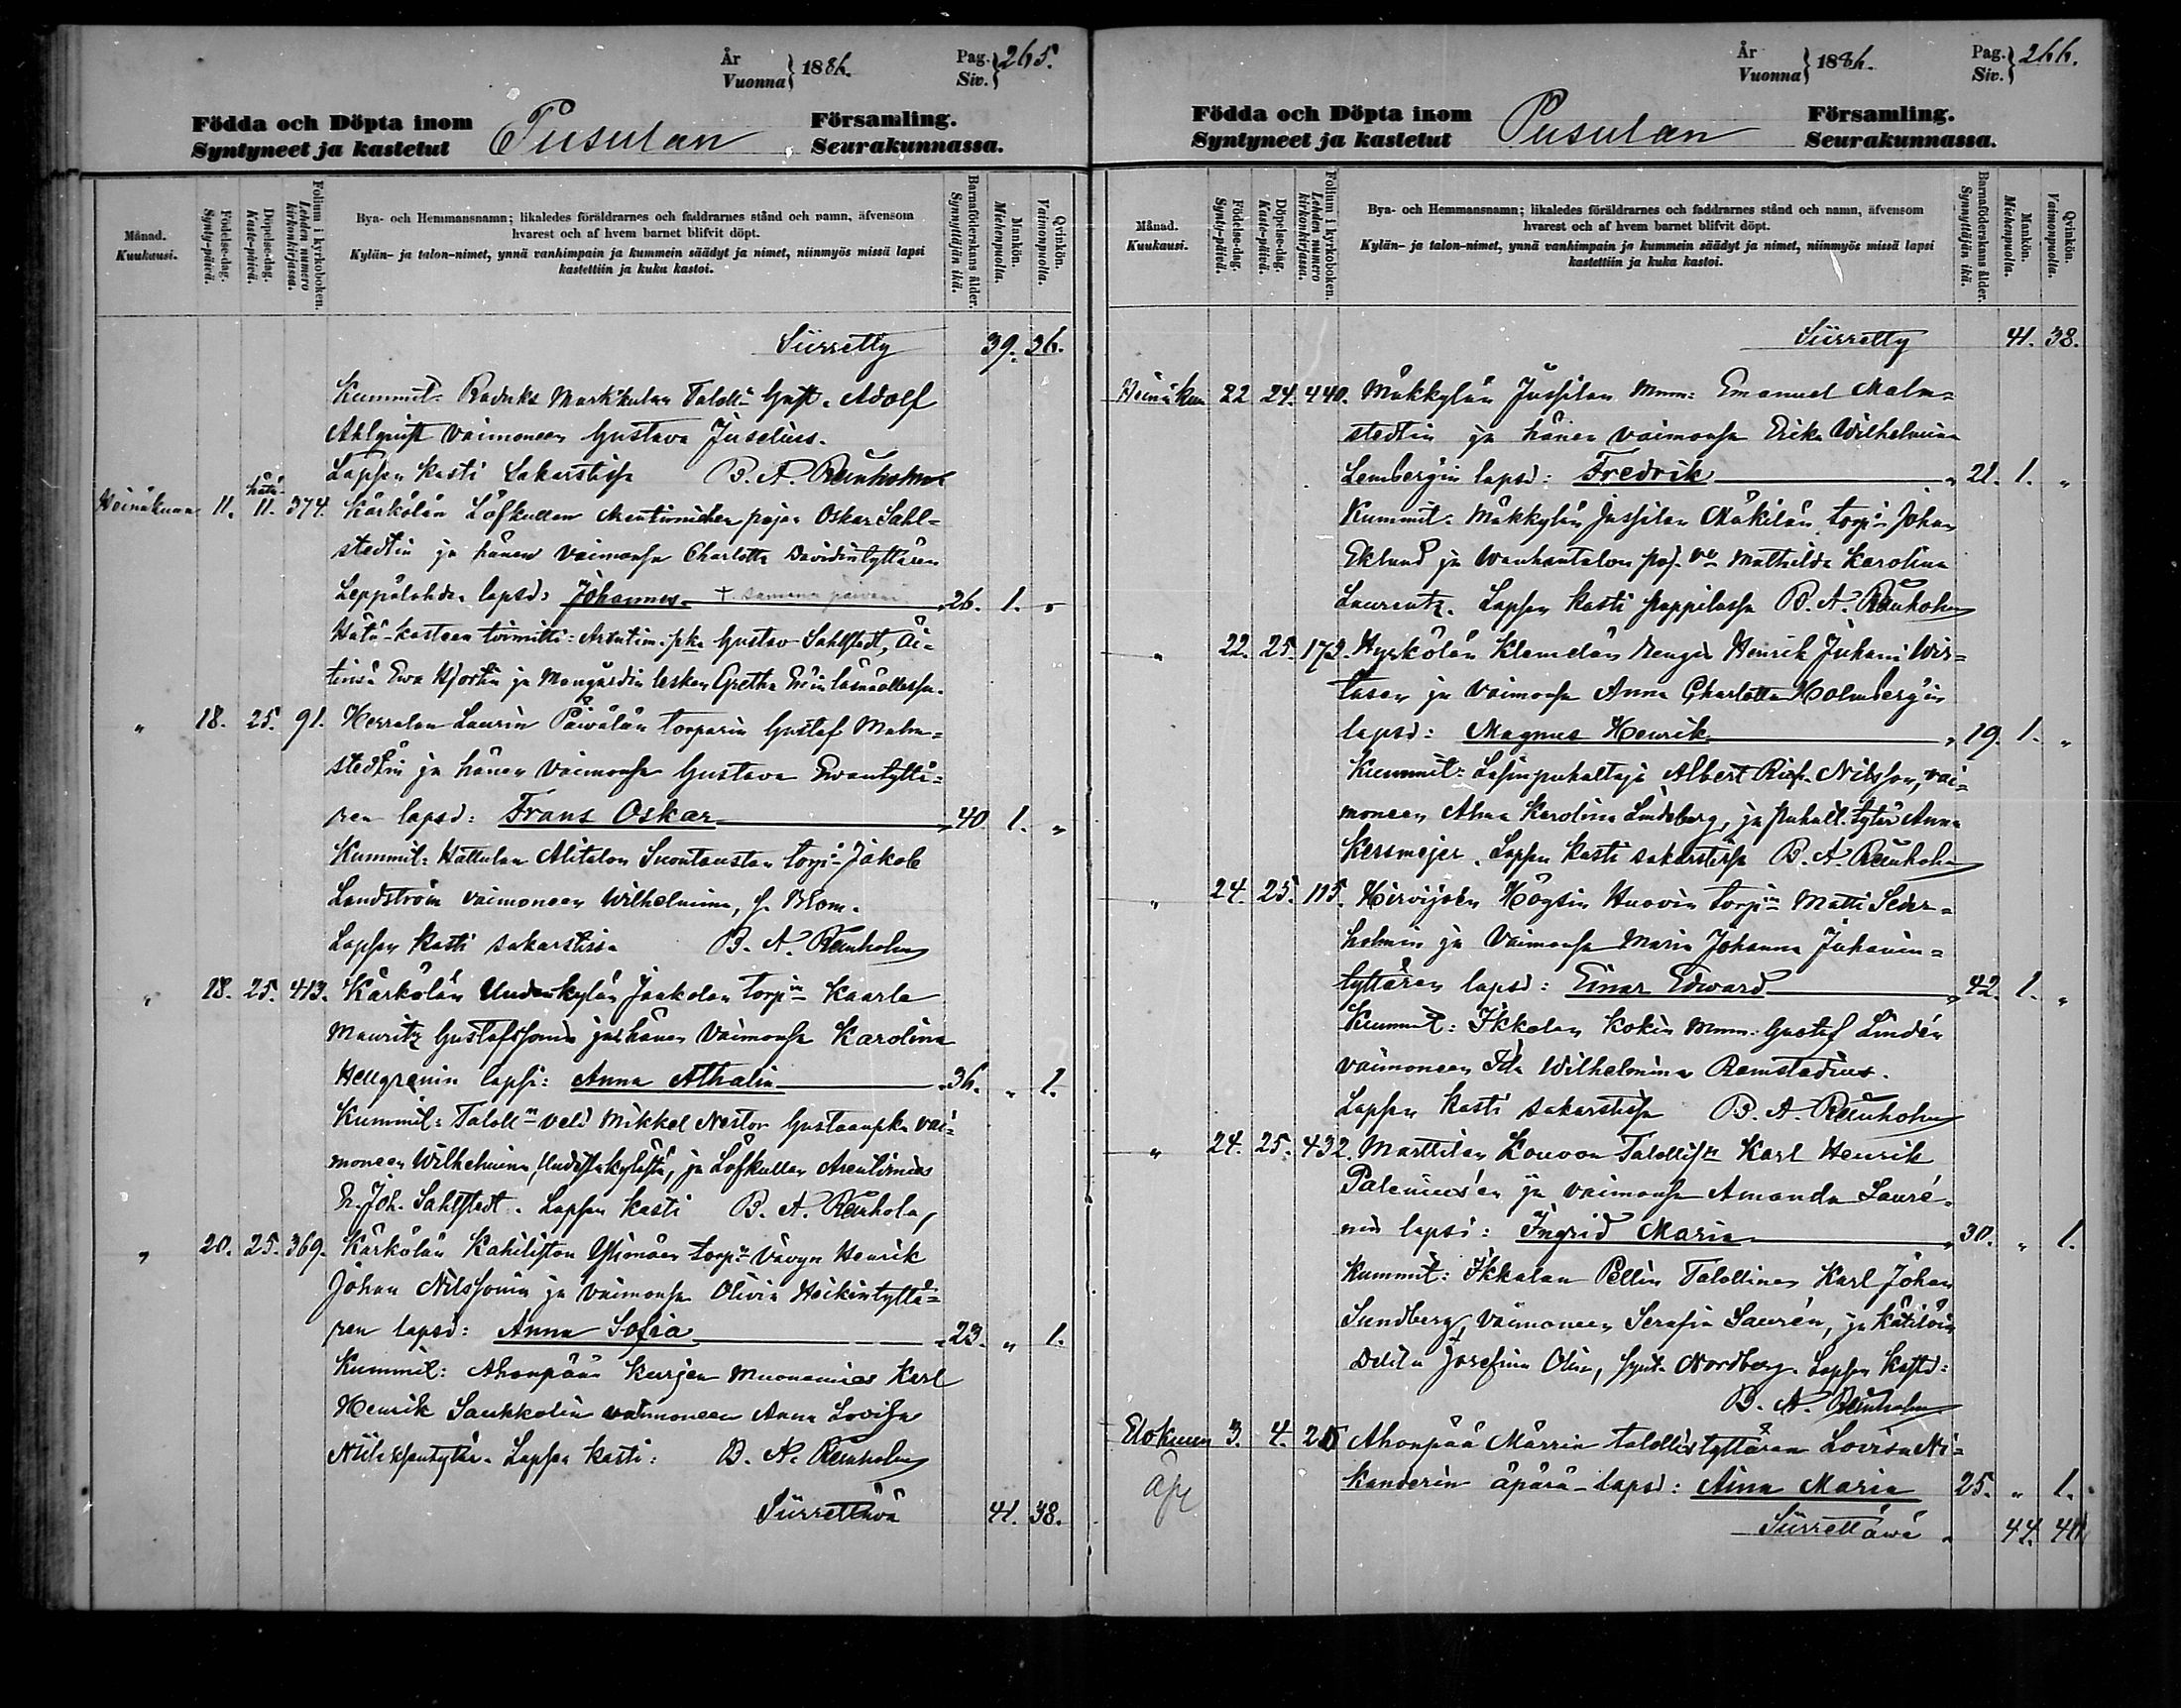 År
Vuonna } 1886.
Pag.
Siv. } 265.
Födda och Döpta inom
Syntyneet ja kastetut
Pusulan
Församling.
Seurakunnassa.
Månad.
Kuukausi.
Födelse-dag.
Synty-päivä.
Döpelse-dag.
Kaste-päivä.
Folium i kyrkoboken.
Lehden numero
kirkonkirjassa.
Bya- och Hemmansnamn; likaledes föräldrarnes och faddrarnes stånd och namn, äfvensom
hvarest och af hvem barnet blifvit döpt.
Kylän- ja talon-nimet, ynnä vanhimpain ja kummein säädyt ja nimet, niinmyös missä lapsi
kastettiin ja kuka kastoi.
Barnaföderskans ålder.
Synnyttäjän ikä.
Mankön.
Miehenpuolta.
Qvinkön.
Vaimonpuolta.
Siirretty 39. 36.
Kummit: Markkulan Gust. Adolf
Ahlqvist vaimoneen Gustava Juselius.
Lapsen kasti Sakastissa B. A. Renholm
Heinäkuun 11. hätä- 11. 374. Kärkölän Löfkullan pojan Oskar Sahl=
stedtin ja hänen vaimonsa Charlotta Davidintyttären
Leppälahden lapsi: Johannes. + samana päivän 26. 1. "
Hätä-kasteen toimitti: Gustav Sahlstedt, Äi=
tinsä Ewa Hjortin ja lesken Gretha läsnäollessa.
" 18. 25. 91. Herralan Laurin Päivälän torparin Gustaf Malm=
stedtin ja hänen vaimonsa Gustava Ewantyttä=
ren lapsi: Frans Oskar " 40. 1. "
Kummit: Hattulan Alitalon Suontaustan torp:n Jakob
Landström vaimoneen Wilhelmina, f. Blom.
Lapsen kasti sakastissa B. A. Renholm
" 18. 25. 413. Kärkölän Uudenkylän Jaakolan torp:n Kaarle
Mauritz Gustafssonin ja hänen vaimonsa Karolina
Hellgrenin lapsi: Anna Athalia " 36. " 1.
Kummit: Taloll:n veli Mikkel Nestor Gustaanpka vai=
moneen Wilhelmina, Uudestakylästä, ja Löfkullan
Er. Joh. Sahlstedt. Lapsen kasti B. A. Renholm
" 20. 25. 369. Kärkölän Kahiliston torp:n vävyn Henrik
Johan Nilssonin ja vaimonsa Olivia Heikintyttä=
ren lapsi: Anna Sofia " 23. " 1.
Kummit: Ahonpään Kurjen Muonamies Karl
Henrik Saukkolin vaimoneen Anna Lovisa
Lapsen kasti: B. A. Renholm
Siirrettävä 41. 38.
År
Vuonna } 1886.
Pag.
Siv. } 266.
Födda och Döpta inom
Syntyneet ja kastetut
Pusulan
Församling.
Seurakunnassa.
Månad.
Kuukausi.
Födelse-dag.
Synty-päivä.
Döpelse-dag.
Kaste-päivä.
Folium i kyrkoboken.
Lehden numero
kirkonkirjassa.
Bya- och Hemmansnamn; likaledes föräldrarnes och faddrarnes stånd och namn, äfvensom
hvarest och af hvem barnet blifvit döpt.
Kylän- ja talon-nimet, ynnä vanhimpain ja kummein säädyt ja nimet, niinmyös missä lapsi
kastettiin ja kuka kastoi.
Barnaföderskans ålder.
Synnyttäjän ikä.
Mankön.
Miehenpuolta.
Qvinkön.
Vaimonpuolta.
Siirretty 41. 38.
Heinäkuu 22 24. 440. Mäkkylän Jussilan Mmm: Emanuel Malm=
stedtin ja hänen vaimonsa Erika Wilhelmina
Lembergin lapsi: Fredrik " 21. 1. "
Kummit: Mäkkylän Jussilan Mäkilän torp:n Johan
Eklund ja Wanhantalon Mathilda Karolina
Laurentz. Lapsen kasti pappilassa B. A. Renholm
" 22. 25. 173. Hyrkölän Klemelän rengin Henrik Juhani Wir=
tasen ja vaimonsa Anna Charlotta Holmbergin
lapsi: Magnus Henrik " 19. 1. "
Kummit: Lasinpuhaltaja Albert Nilsson, vai=
moneen Alma Karolina Lindeberg, ja puhalt. tytär Anna
Kersmejer. Lapsen kasti sakastissa B. A. Renholm
" 24. 25. 115. Hirvijoen Högsin Huovin torp:in Matti Seder=
holmin ja vaimonsa Maria Johanna Juhanin=
tyttären lapsi: Einar Edward " 42. 1. "
Kummit: Ikkalan Kokin Mmm: Gustaf Lindén
vaimoneen Ida Wilhelmina Renstadius.
Lapsen kasti sakastissa B. A. Renholm
" 24. 25. 432. Marttilan Kouvon Karl Henrik
Palenius'en ja vaimonsa Amanda Laurén=
nin lapsi: Ingrid Maria " 30. " 1.
Kummit: Ikkalan Pellin Talollinen Karl Johan
Sundberg, vaimoneen Serafia Laurén, ja kätilön
Delila Josefina Olin, synt. Nordberg. Lapsen kasti:
B. A. Renholm
Elokuun 3. 4. Ahonpää Märrin talollis tyttären Lovisa Ni=
kanderin äpärä-lapsi: Aina Maria 25. " 1.
äpr
Siirrettäwä " 44. 40